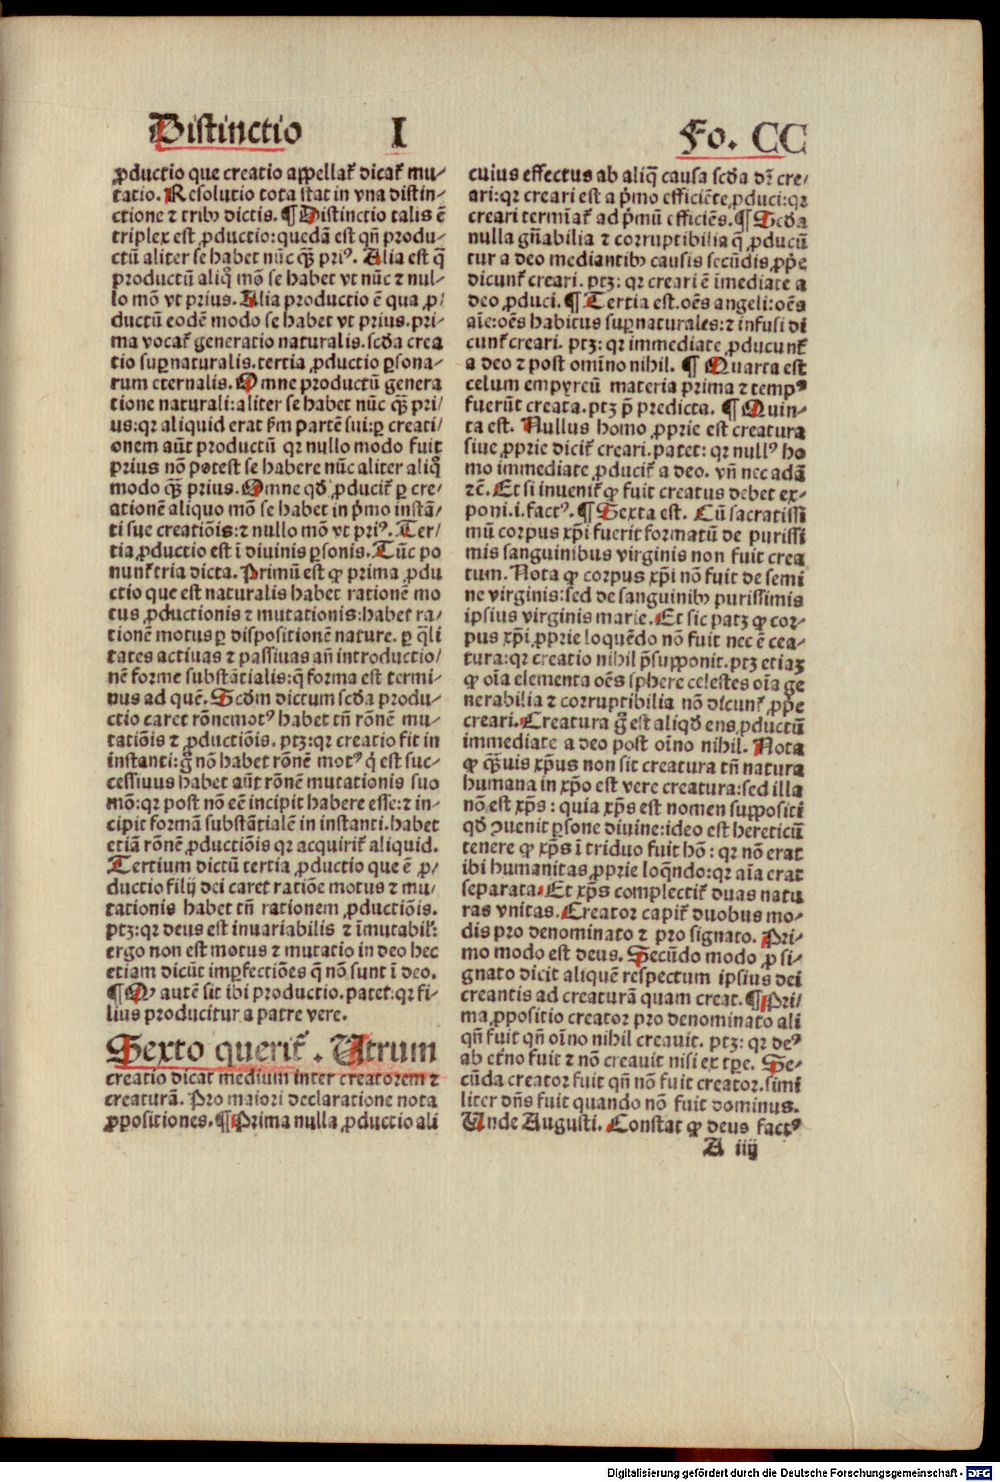 Distinctio I Fo. CC
ꝓductio que creatio appellat᷑ dicat᷑ mu⸗
tatio. Resolutio tota stat in vna distin⸗
ctione ⁊ tribꝰ dictis. ¶ Distinctio talis ē
triplex est ꝓductio: quedā est qn̄ produ⸗
ctū aliter se habet nūc qȝ̄ priꝰ. Alia est q̄
productū aliq̊ mō se habet vt nūc ⁊ nul⸗
lo mō vt prius. Alia productio ē qua ꝓ⸗
ductū eodē modo se habet vt prius. pri⸗
ma vocat᷑ generatio naturalis. scd̄a crea
tio suꝑnaturalis. tertia ꝓductio ꝑsona⸗
rum eternalis. Omne productū genera
tione naturali: aliter se habet nūc qȝ̄ pri⸗
us: qꝛ aliquid erat ẜm partē sui: ꝑ creati⸗
onem aūt productū qꝛ nullo modo fuit
prius nō potest se habere nūc aliter aliq̊
modo qȝ̄ prius. Omne qd̄ ꝓducit᷑ ꝑ cre⸗
ationē aliquo mō se habet in p̄mo instā⸗
ti sue creatiōis: ⁊ nullo mō vt priꝰ. Ter⸗
tia ꝓductio est ī diuinis ꝑsonis. Tūc po
nunt᷑ tria dicta. Primū est ꝙ prima ꝓdu
ctio que est naturalis habet rationē mo
tus ꝓductionis ⁊ mutationis: habet ra⸗
tionē motus ꝑ dispositionē nature. ꝑ q̄li
tates actiuas ⁊ passiuas an̄ introductio⸗
nē forme substātialis: q̄ forma est termi⸗
nus ad quē. Scd̄m dictum scd̄a produ⸗
ctio caret rōnemotꝰ habet tn̄ rōnē mu⸗
tatiōis ⁊ ꝓductiōis. ptȝ: qꝛ creatio fit in
instanti: g̊ nō habet rōnē motꝰ q̇ est suc⸗
cessiuus habet aūt rōnē mutationis suo
mō: qꝛ post nō eē incipit habere esse: ⁊ in⸗
cipit formā substātialē in instanti. habet
etiā rōnē ꝓductiōis qꝛ acquirit᷑ aliquid.
Tertium dictū tertia ꝓductio que ē ꝓ⸗
ductio filij dei caret ratiōe motus ⁊ mu⸗
tationis habet tn̄ rationem ꝓductiōis.
ptȝ: qꝛ deus est inuariabilis ⁊ īmutabil᷑:
ergo non est motus ⁊ mutatio in deo hec
etiam dicūt imꝑfectiōes q̄ nō sunt ī deo.
¶ Qꝰ autē sit ibi productio. patet: qꝛ fi⸗
lius producitur a patre vere.
Sexto querit᷑. Utrum
creatio dicat medium inter creatorem ⁊
creaturā. Pro maiori declaratione nota
ꝓpositiones. ¶ Prima nulla ꝓductio ali
cuius effectus ab aliq̄ causa scd̄a dr̄ cre⸗
ari: qꝛ creari est a p̄mo efficiēte ꝓduci: qꝛ
creari termīat᷑ ad p̄mū efficiēs. ¶ Scd̄a
nulla gn̄abilia ⁊ corruptibilia q̄ ꝓducū
tur a deo mediantibꝰ causis secūdis ꝓp̄e
dicunt᷑ creari. ptȝ: qꝛ creari ē īmediate a
deo ꝓduci. ¶ Tertia est. oēs angeli: oēs
aīe: oēs habitus suꝑnaturales: ⁊ infusi di
cunt᷑ creari. ptȝ: qꝛ immediate ꝓducunt᷑
a deo ⁊ post omīno nihil. ¶ Quarta est
celum empyreū materia prima ⁊ tempꝰ
fuerūt creata. ptȝ p̄ predicta. ¶ Quin⸗
ta est. Nullus homo ꝓprie est creatura
siue ꝓprie dicit᷑ creari. patet: qꝛ nullꝰ ho
mo immediate ꝓducit᷑ a deo. vn̄ nec adā
⁊c̄. Et si inuenit᷑ ꝙ fuit creatus debet ex⸗
poni. i. factꝰ. ¶ Sexta est. Cū sacratissi
mū corpus xp̄i fuerit formatū de purissi
mis sanguinibus virginis non fuit crea
tum. Nota ꝙ corpus xp̄i nō fuit de semi
ne virginis: sed de sanguinibꝰ purissimis
ipsius virginis marie. Et sic patȝ ꝙ cor⸗
pus xp̄i ꝓprie loquēdo nō fuit nec ē cea⸗
tura: qꝛ creatio nihil p̄supponit. ptȝ etiaȝ
ꝙ oīa elementa oēs sphere celestes oīa ge
nerabilia ⁊ corruptibilia nō dicunt᷑ ꝓp̄e
creari. Creatura g̊ est aliqd̄ ens ꝓductū
immediate a deo post oīno nihil. Nota
ꝙ qȝ̄uis xp̄us non sit creatura tn̄ natura
humana in xp̄o est vere creatura: sed illa
nō est xp̄s: quia xp̄s est nomen suppositi
qd̄ ꝯuenit ꝑsone diuine: ideo est hereticū
tenere ꝙ xp̄s ī triduo fuit hō: qꝛ nō erat
ibi humanitas ꝓprie loq̄ndo: qꝛ aīa erat
separata. Et xp̄s complectit᷑ duas natu
ras vnitas. Creator capit᷑ duobus mo⸗
dis pro denominato ⁊ pro signato. Pri⸗
mo modo est deus. Secūdo modo ꝓ si⸗
gnato dicit aliquē respectum ipsius dei
creantis ad creaturā quam creat. ¶ Pri⸗
ma ꝓpositio creator pro denominato ali
qn̄ fuit qn̄ oīno nihil creauit. ptȝ: qꝛ deꝰ
ab et̄no fuit ⁊ nō creauit nisi ex tꝑe. Se⸗
cūda creator fuit qn̄ nō fuit creator. simi
liter dn̄s fuit quando nō fuit dominus.
Unde Augusti. Constat ꝙ deus factꝰ
A iij
Digitalisierung gefördert durch die Deutsche Forschungsgemeinschaft - DFG